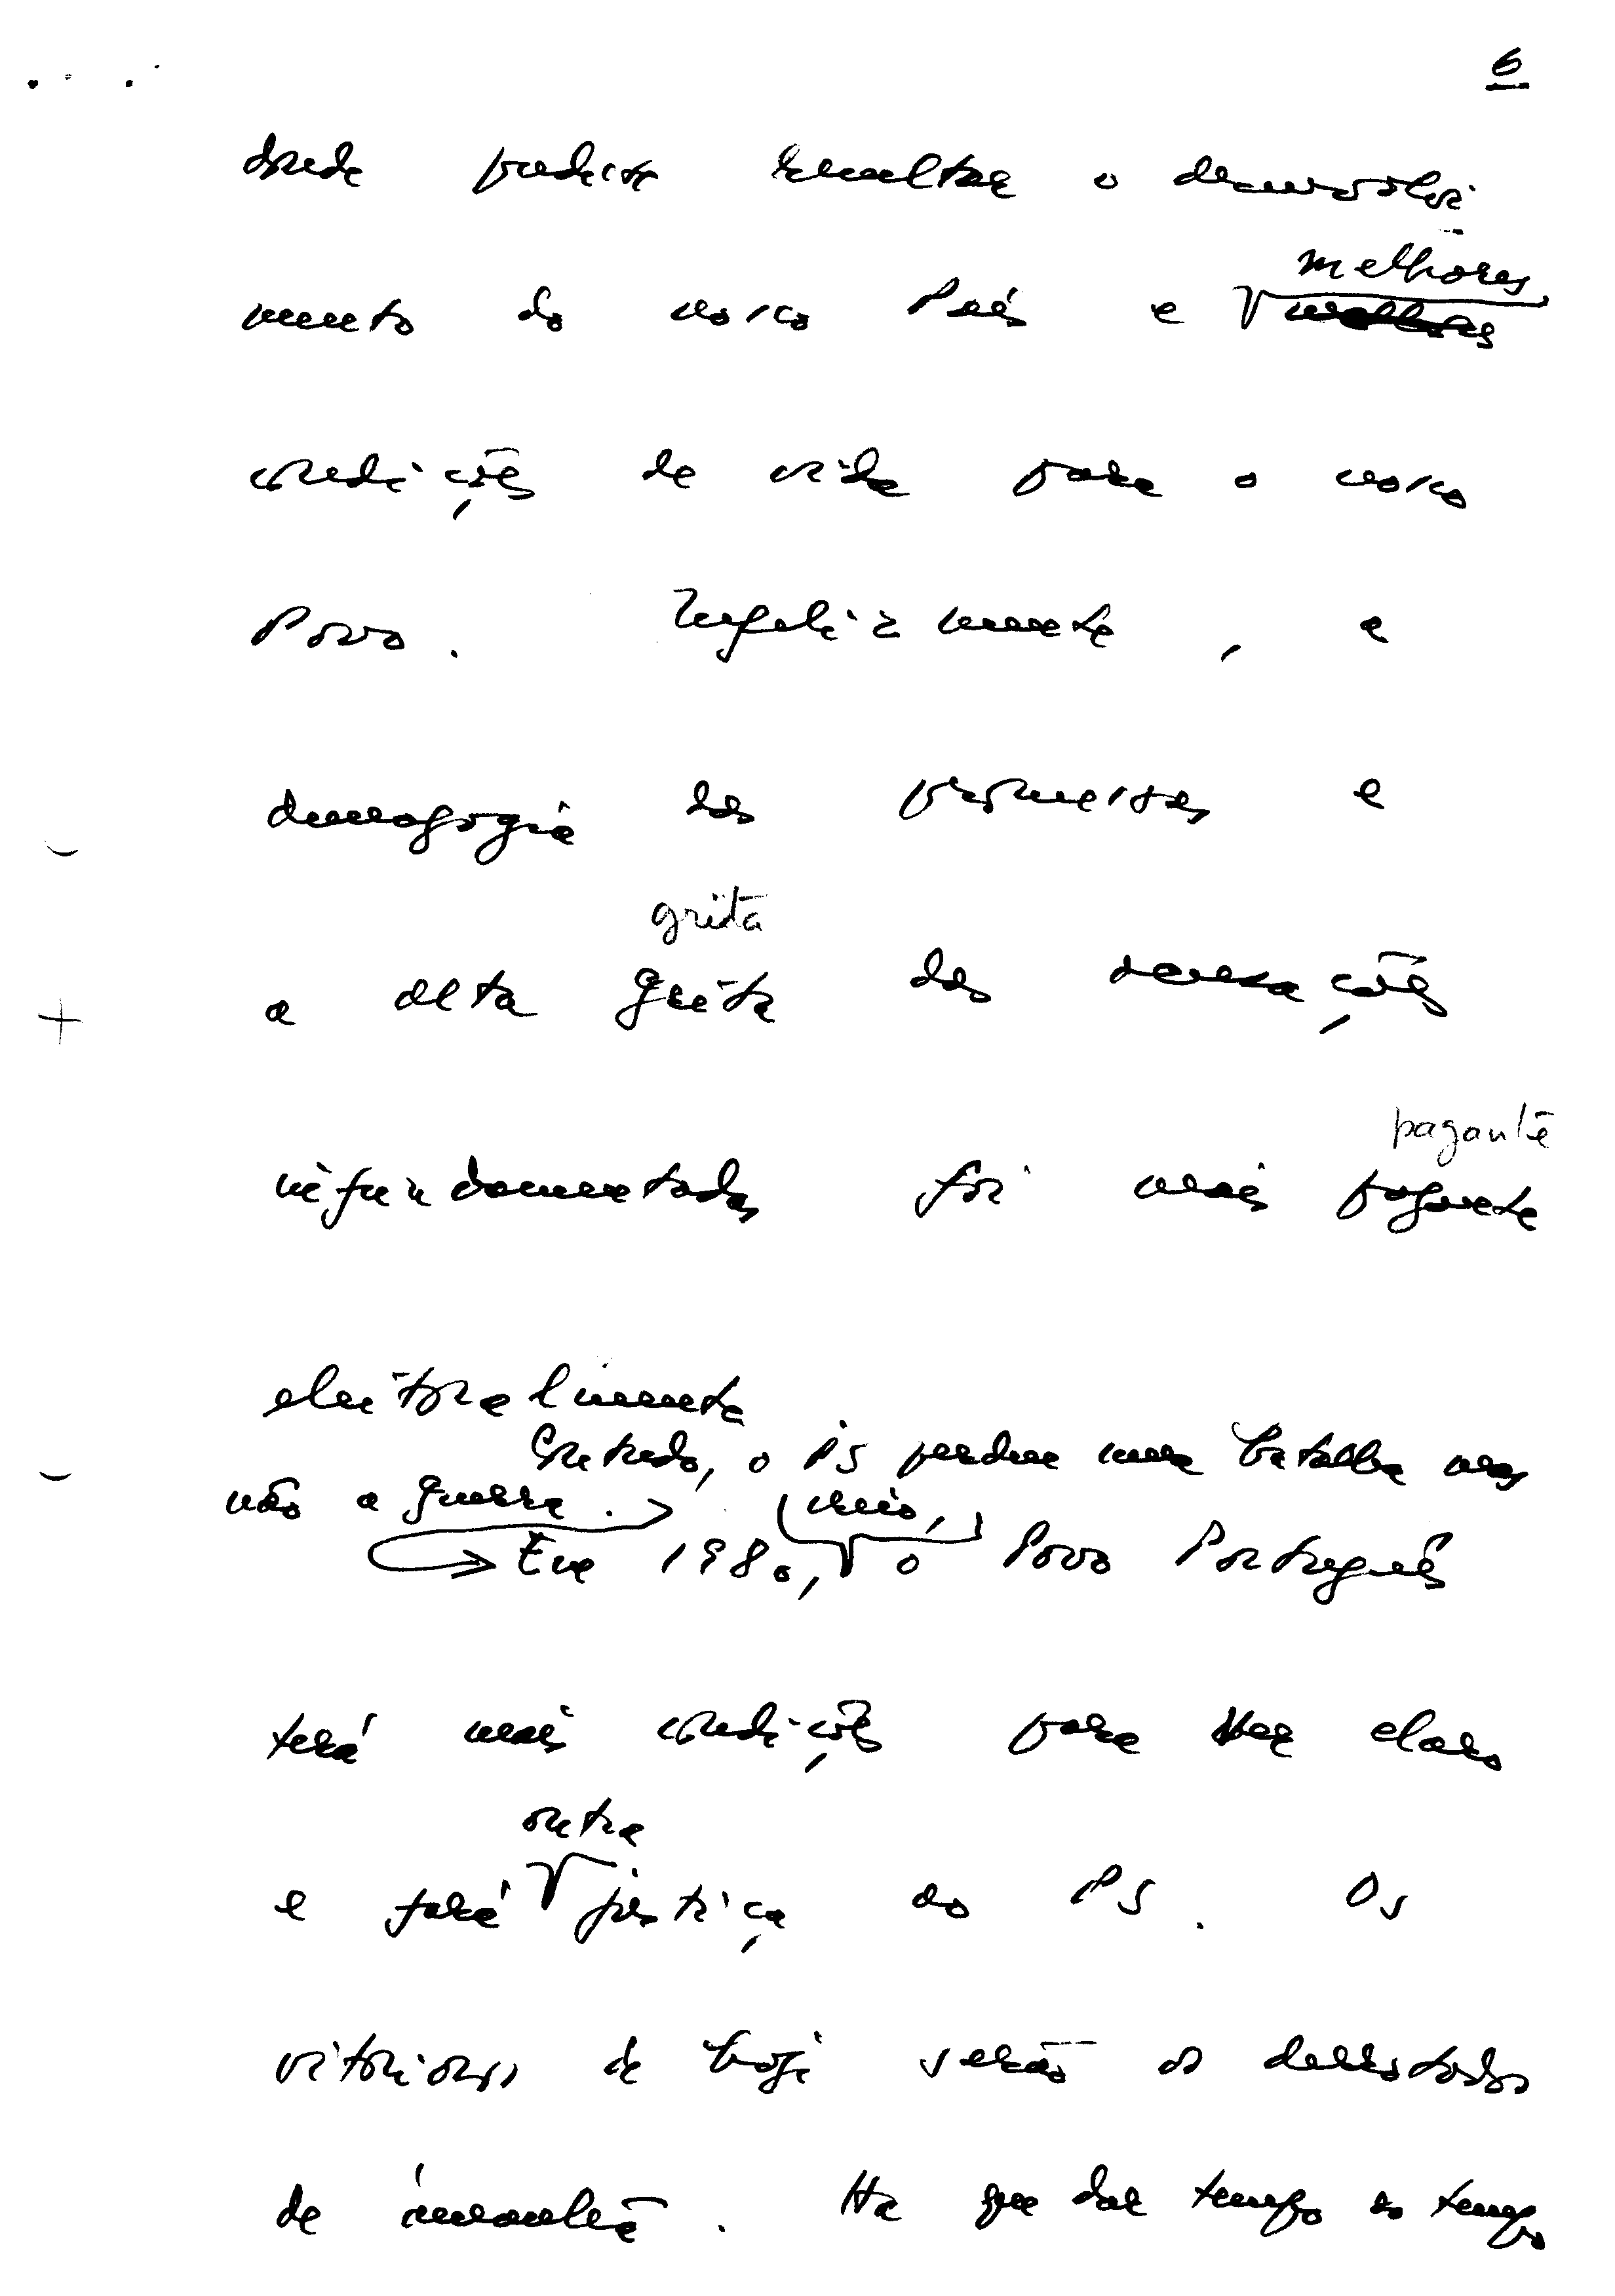 6
donde pudesse resultar o desenvolvi-
melhores
mento do nosso País e melhores
condições de vida para o nosso
Povo. Infelizmente, a
demagogia das promessas e
grita
a alta grita das acusações
infundamentadas foi mais pagante
pagante
eleitoralmente
Contudo, o PS perdeu uma batalha mas
não a guerra.
Em 1980, creio, o Povo Português
terá mais condições para ver claro
outra
e fará justiça ao PS. Os
vitoriosos de hoje serão os derrotados
de amanhã. Há que dar tempo ao tempo